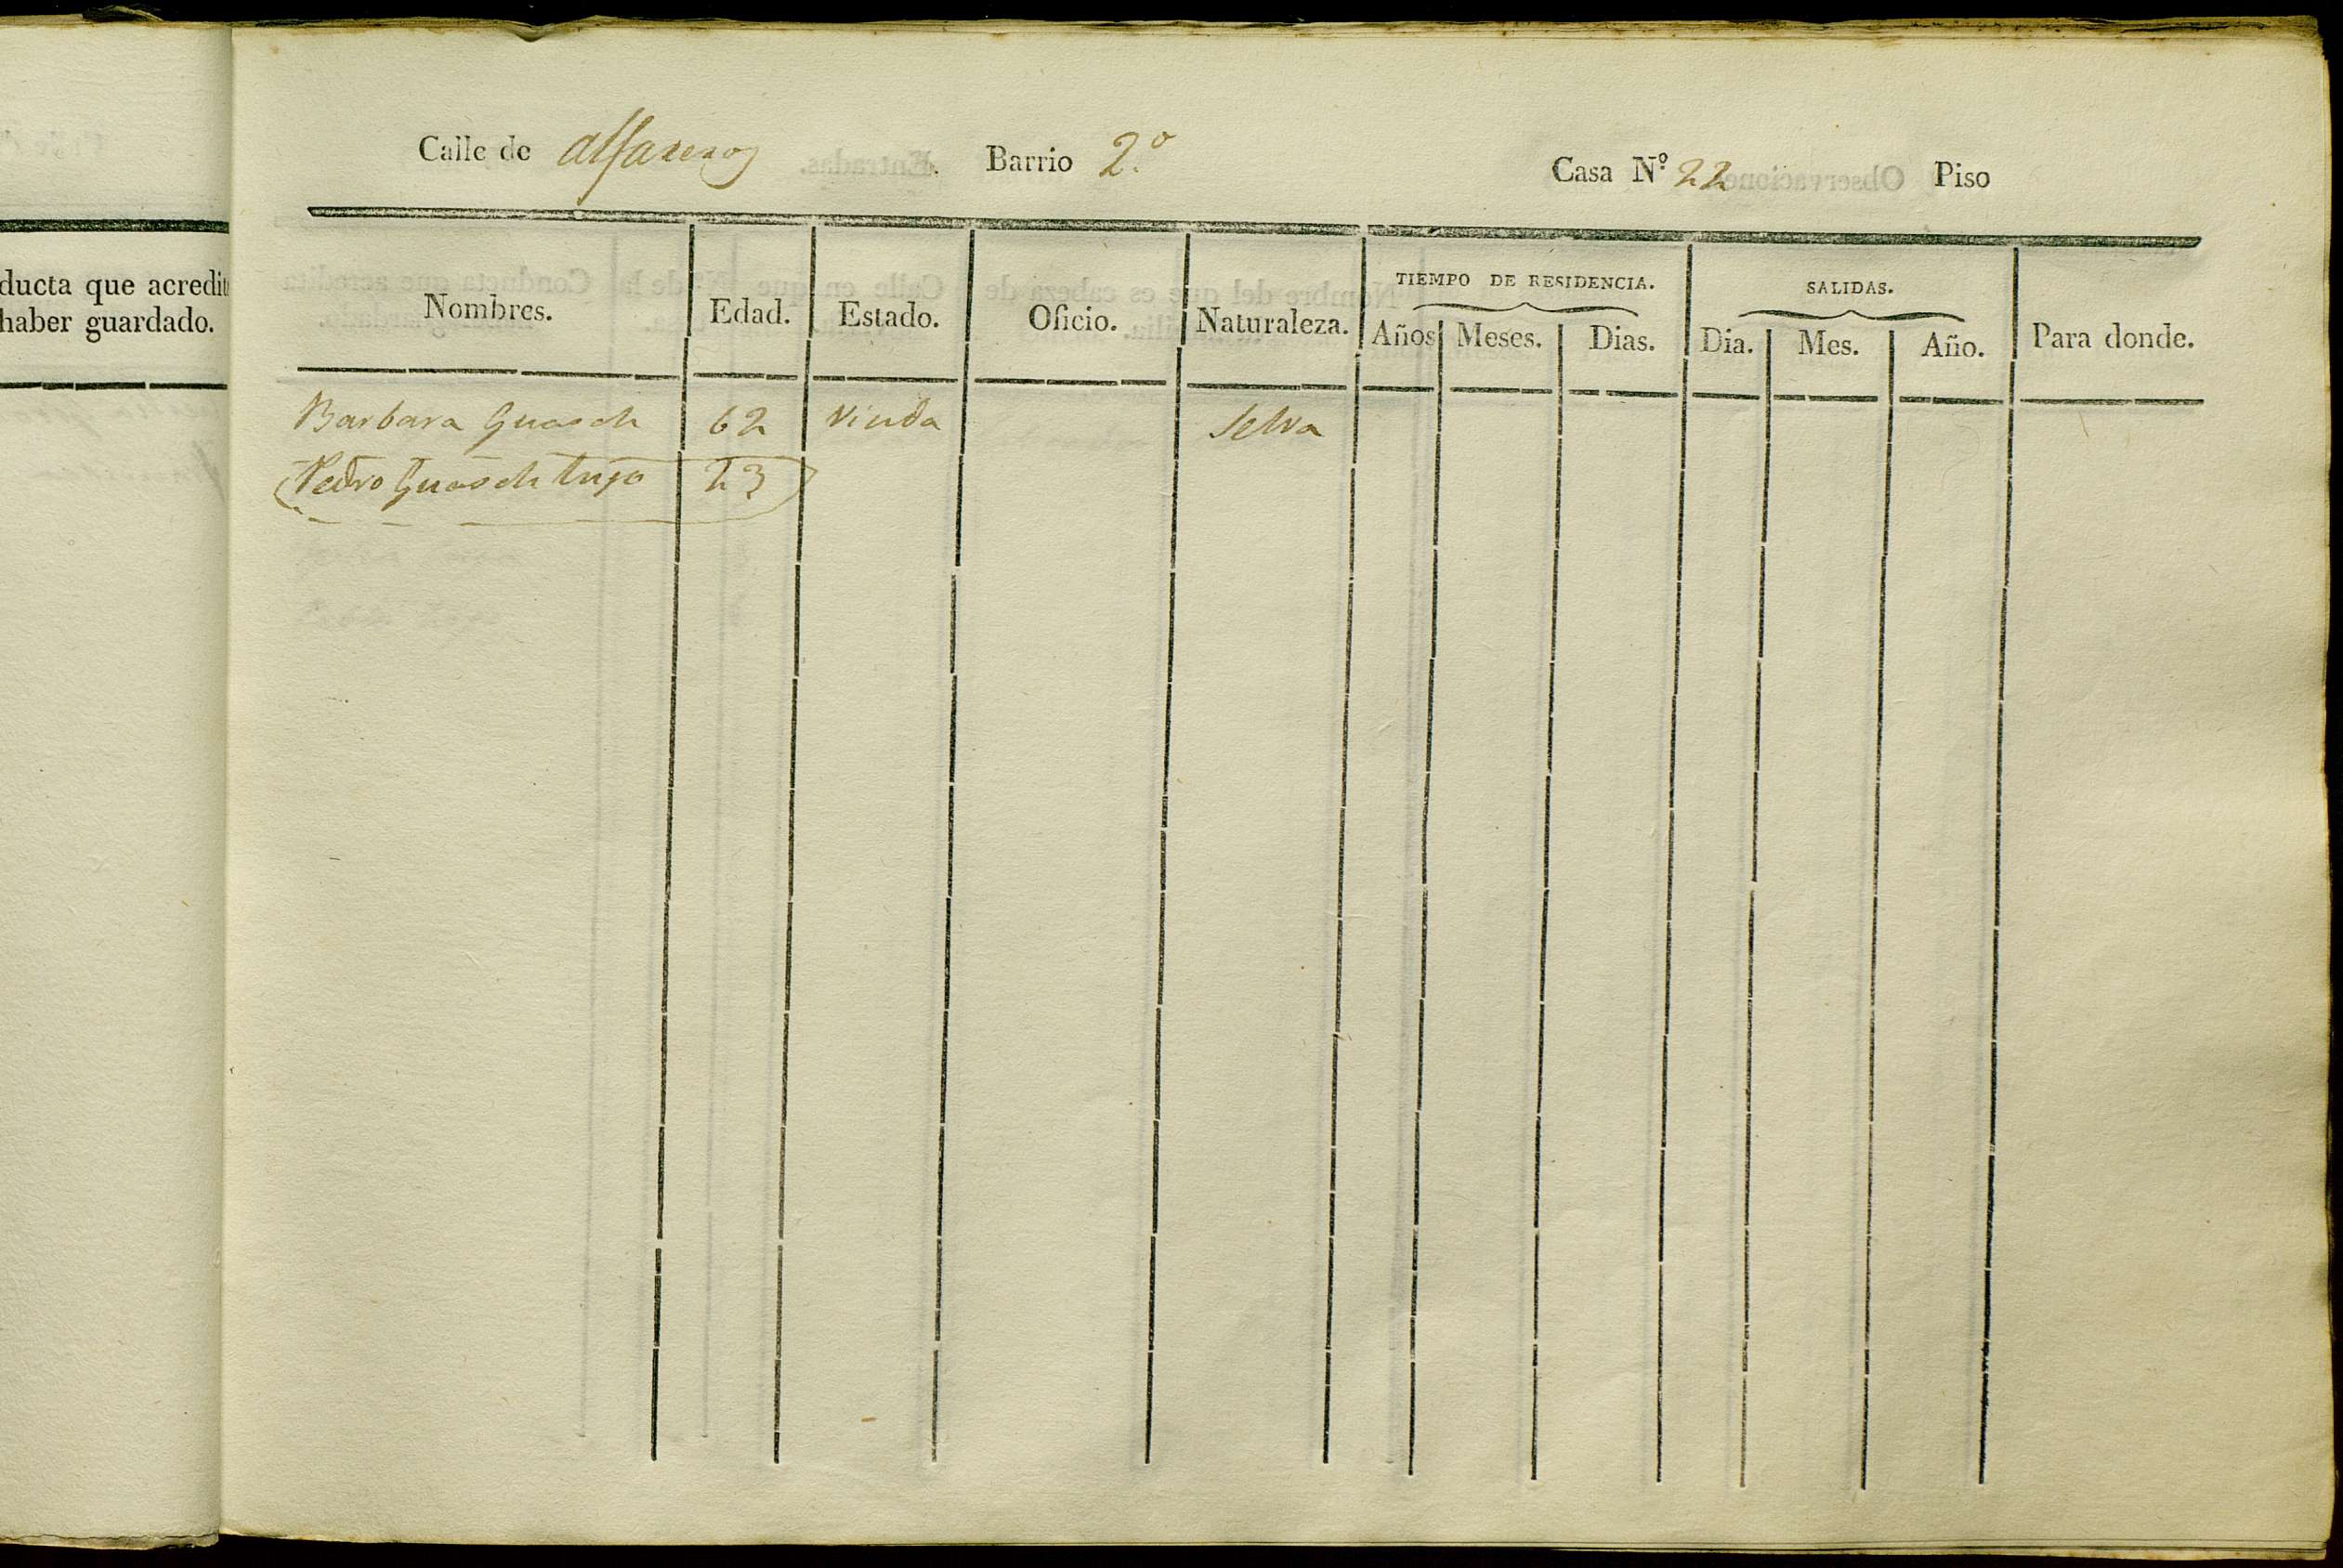 Calle de alfareros Barrio 2.º Casa N.º 22 Piso
ducta que acredit
haber guardado.
Nombres. Edad. Estado. Oficio. Naturaleza. TIEMPO DE RESIDENCIA. SALIDAS. Para donde.
Años Meses. Dias. Dia. Mes. Año.
Barbara Guasch 62 Viuda Selva
Pedro Guasch hijo 23